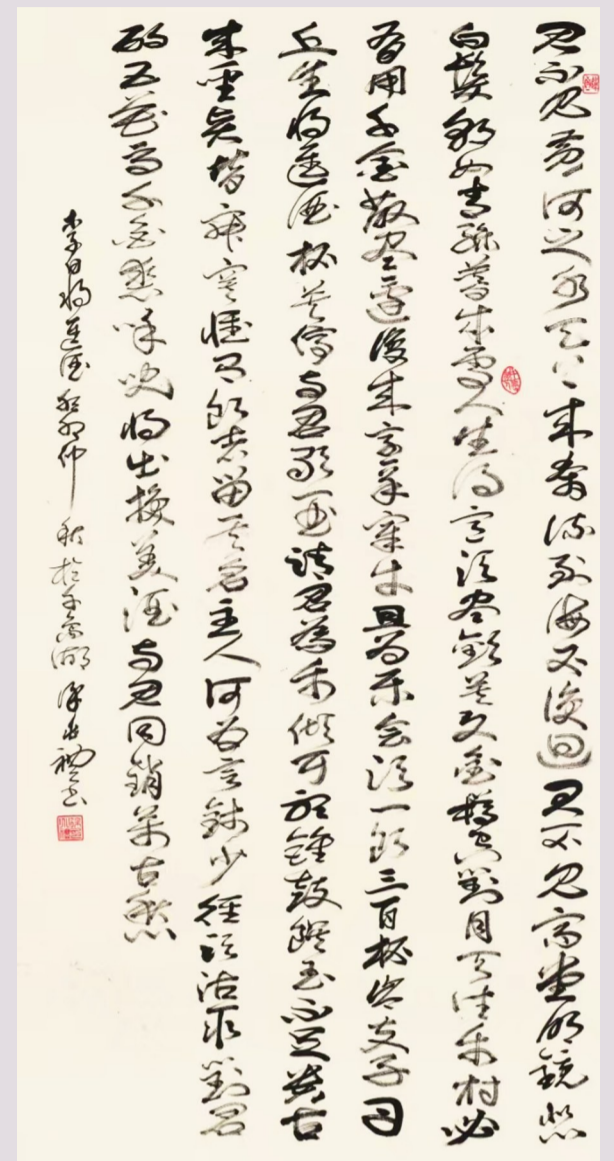 君不見黃河之水天上來奔流到海不復回君不見高堂明鏡悲
白髮朝如青絲暮成雪人生得意須盡歡莫使金樽空對月天生我材必
有用千金散盡還復來烹羊宰牛且為樂會須一飲三百杯岑夫子丹
丘生將進酒杯莫停與君歌一曲請君為我傾耳聽鐘鼓饌玉不足貴古
來聖賢皆寂寞惟有飲者留其名主人何為言錢少徑須沽取對君
酌五花馬千金裘呼兒將出換美酒與君同銷萬古愁
李白將進酒癸卯仲秋於千島湖書